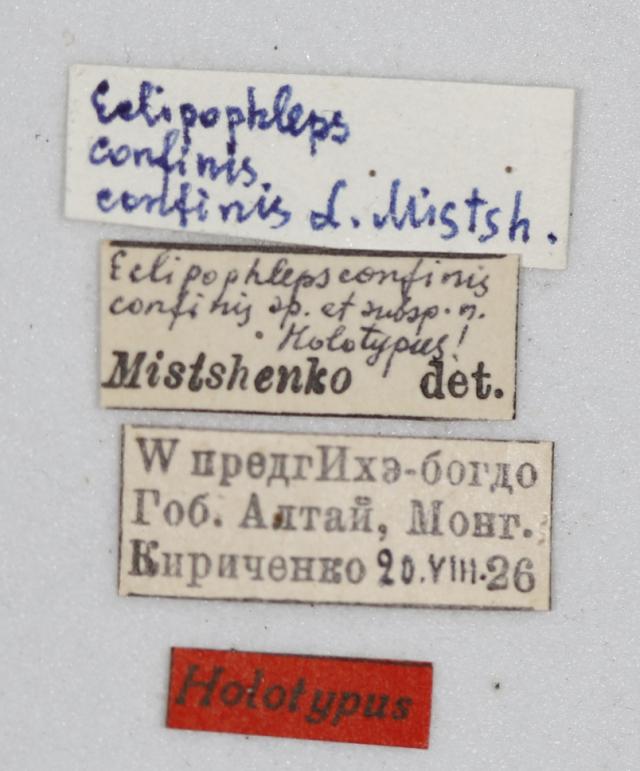 Eclipophleps
confinis
confinis L. Mistsh.
Eclipophleps confinis
confinis sp. et subsp. n.
Holotypus!
Mistshenko det.
W предгИхэ-богдо
Гоб. Алтай, Монг.
Кириченко 20.VIII.26
Holotypus